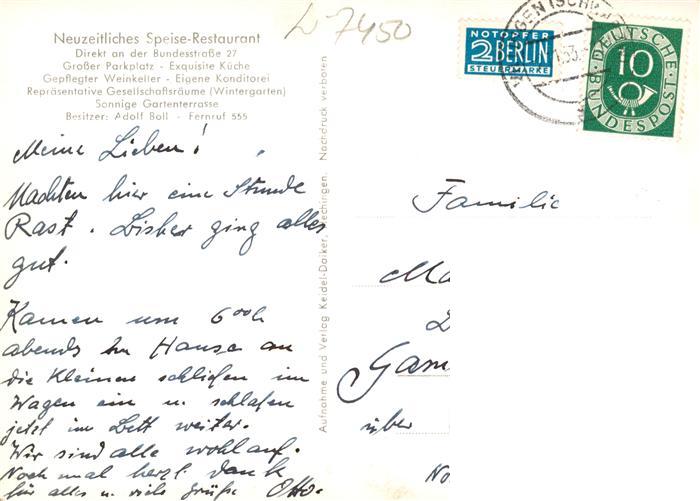 Neuzeitliches Speise-Restaurant
Direkt an der Bundesstraße 27
Großer Parkplatz - Exquisite Küche
Gepflegter Weinkeller - Eigene Konditorei
Repräsentative Gesellschaftsräume (Wintergarten)
Sonnige Gartenterrasse
Besitzer: Adolf Boll - Fernruf 555
7450
NOTOPFER
2 BERLIN
STEUERMARKE
DEUTSCHE
BUNDESPOST
10
Meine Lieben!
Machten hier eine Stunde
Rast. Bisher ging alles
gut.
Kamen um 6 00 h
abends zu Hause an
die Kleinen schliefen im
Wagen ein u. schlafen
jetzt im Bett weiter.
Wir sind alle wohlauf.
Noch mal herzl. Dank
für alles u. viele Grüße Otto.
Aufnahme und Verlag Keidel-Daiker, Hechingen. Nachdruck verboten
Familie
Ma
Gam
über
No